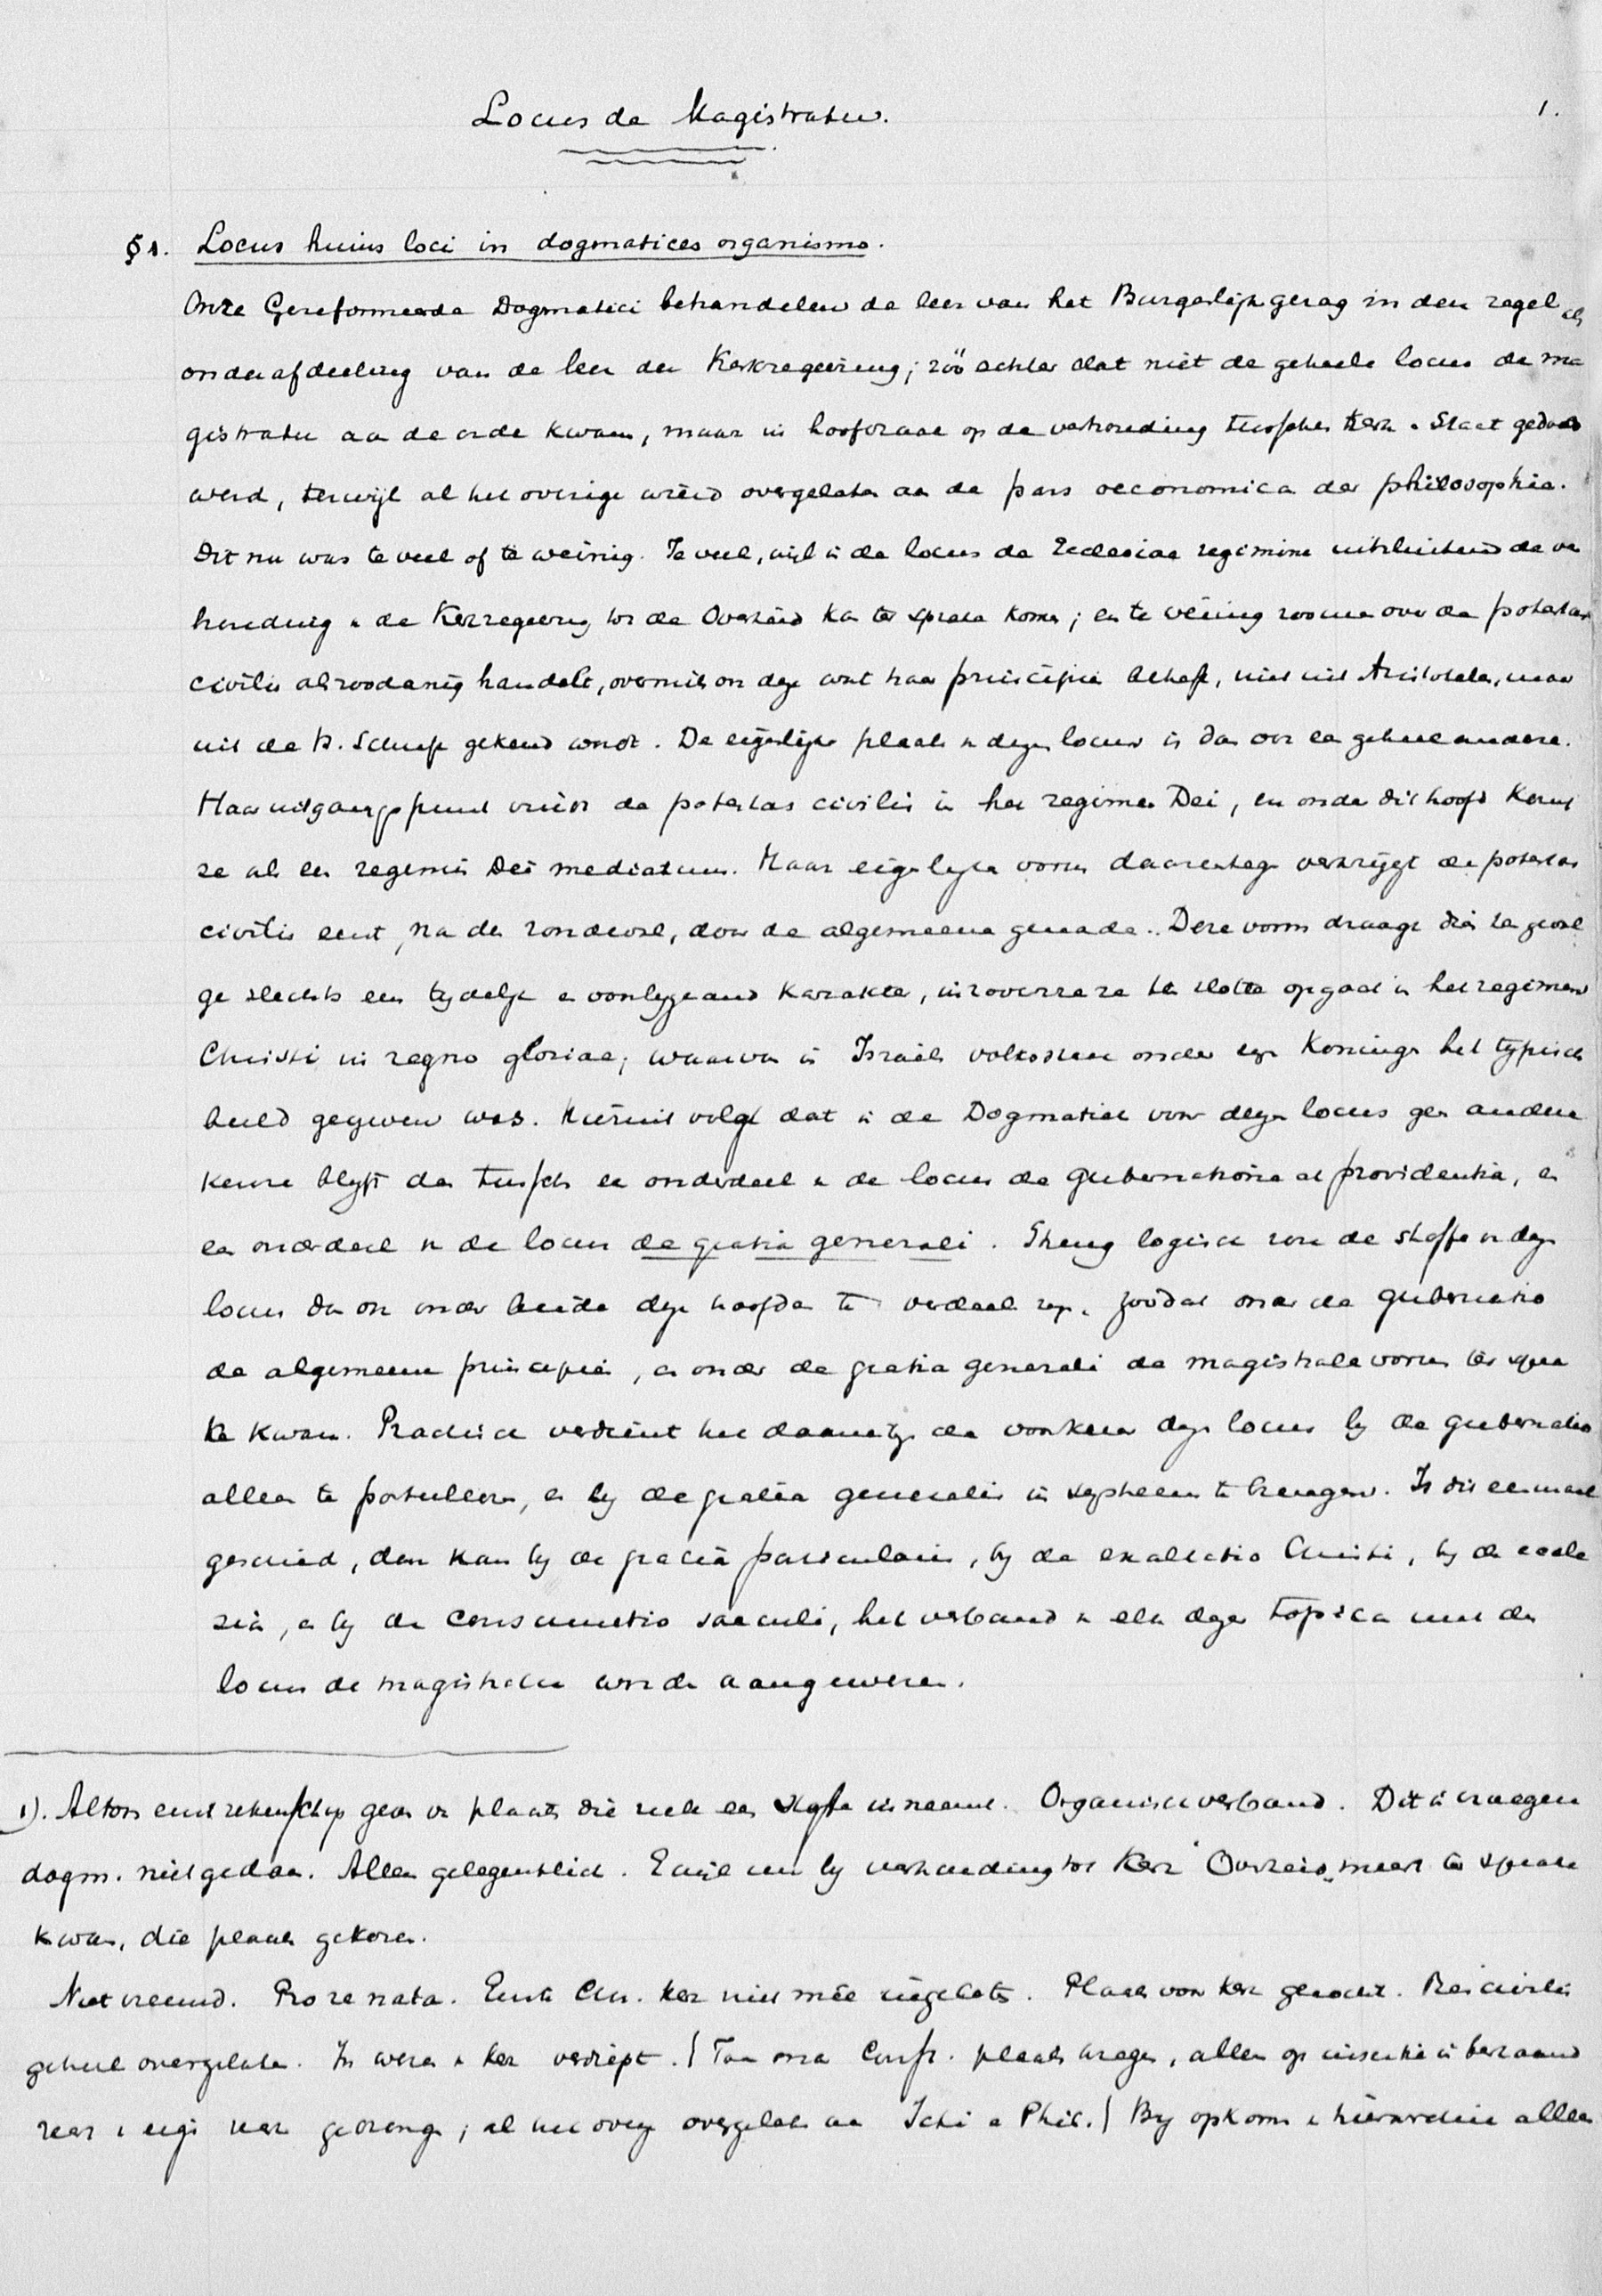 Locus de Magistratu.
1.
§ 1. Locus huius loci in dogmatices organismo.
Onze Gereformeerde Dogmatici behandelen de leer van het Burgerlijk gezag in den regel als
onderafdeeling van de leer der Kerkregeering; zóó echter dat niet de geheele locus de ma
gistratu aan de orde kwam, maar in hoofdzaak op de verhouding tusschen Kerk en Staat gedoeld
werd, terwijl al het overige wierd overgelaten aan de pars oeconomica der philosophia.
Dit nu was te veel of te weinig. Te veel, wijl in de locus de Ecclesiae regimine uitsluitend de ver
houding v. de Kerkregeering tot de Overheid kan ter sprake komen; en te weinig zoo men over de potestas
civilis als zoodanig handelt, overmits ook deze wat haar principia betreft, niet uit Aristoteles, maar
uit de H. Schrift gekend wordt. De eigenlijke plaats v. dezen locus is dan ook een geheel andere.
Haar uitgangspunt vindt de potestas civilis in het regimen Dei, en onder dit hoofd komt
ze als een regimen Dei mediatum. Haar eigenlijken vorm daarentegen verkrijgt de potestas
civilis eerst, na den zondeval, door de algemeene genade. Deze vorm draagt dien ten gevol
ge slechts een tijdelijk en voorbijgaand karakter, in zooverre ze ten slotte opgaat in het regimen
Christi in regno gloriae; waarvan in Israëls volksstaat onder zijn Koningen het typisch
beeld gegeven was. Hieruit volgt dat in de Dogmatiek voor dezen locus geen andere
keuze blijft dan tusschen een onderdeel v. de locus de gubernatione ac providentia, en
een onderdeel v. de locus de gratia generali. Streng logisch zou de stoffe v. dezen
locus dan ook onder beide deze hoofden te verdeelen zijn, zoodat onder de gubernatio
de algemeene principia, en onder de gratia generali de magistrale vorm ter spra
ke kwam. Practisch verdient het daarentegen de voorkeur deze locus bij de gubernatio
alleen te postuleeren, en bij de gratia generalis in systeem te brengen. Is dit eenmaal
geschied, dan kan bij de gratia particularis, bij de exaltatio Christi, bij de eccle
sia, en bij de consummatio saeculi, het verband v. elk dezer topica met den
locus de magistratu worden aangewezen.
1). Altoos eerst rekenschap geven v. plaats die zulk een stoffe inneemt. Organisch verband. Dit in vroegere
dogm. niet gedaan. Alleen gelegentlich. Enwijl nu bij verhouding tot Kerk Overheid meest ter sprake
kwam, die plaats gekozen.
Niet vreemd. Pro re nata. Eerste Chr. kerk niet mée ingelaten. Plaats voor kerk gezocht. Res civilis
geheel overgelaten. In wezen v. kerk verdiept. | Toen onze Conf. plaats vragen, alleen op
; al het overige overgelaten aan Icti en Phil. | Bij opkomst v. hierarchie alleen